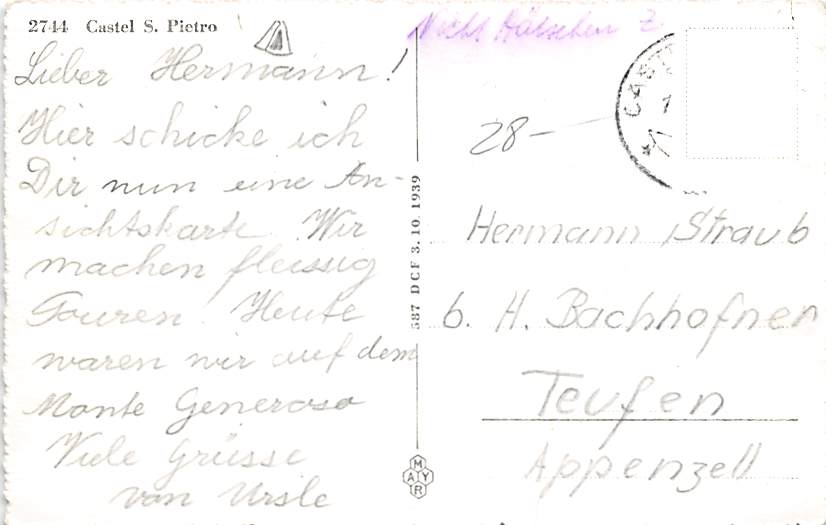 2744 Castel S. Pietro
Lieber Hermann!
Hier schicke ich
Dir nun eine An-
sichtskarte. Wir
machen fleissig
Touren. Heute
waren wir auf dem
Monte Generoso
Viele Grüsse
von Ursle
587 DCF 3.10.1939
MAYR
Nicht
28-
CAST
Hermann Straub
b. H. Bachhofner
Teufen
Appenzell